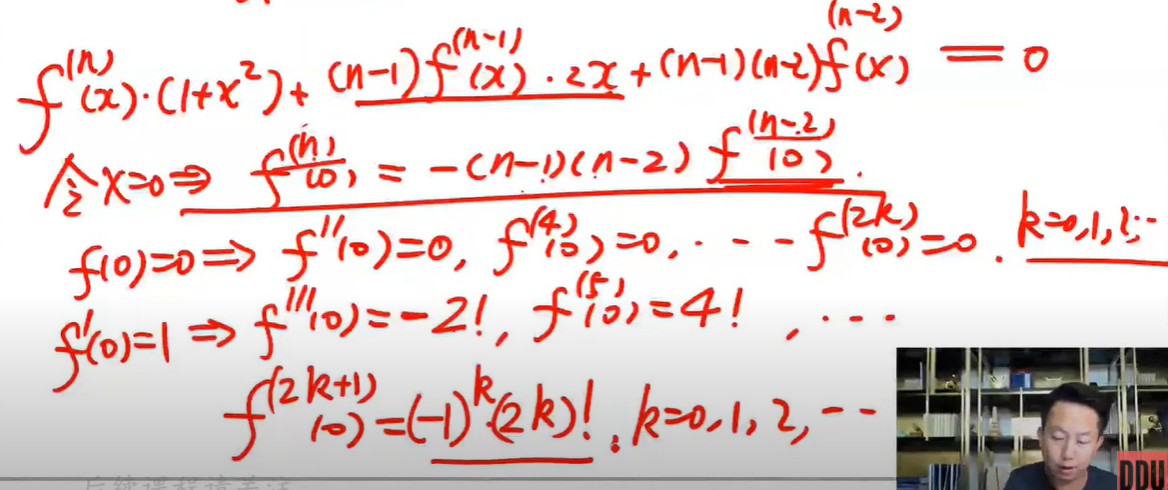 f⁽ⁿ⁾(x)·(1+x²)+(n-1)f⁽ⁿ⁻¹⁾(x)·2x+(n-1)(n-2)f⁽ⁿ⁻²⁾(x)=0
令x=0⇒ f⁽ⁿ⁾(0)=-(n-1)(n-2)f⁽ⁿ⁻²⁾(0).
f(0)=0⇒f''(0)=0, f⁽⁴⁾(0)=0, ···f⁽²ᵏ⁾(0)=0. k=0,1,2,··
f'(0)=1⇒f'''(0)=-2!, f⁽⁵⁾(0)=4!, ···
f⁽²ᵏ⁺¹⁾(0)=(-1)ᵏ·(2k)!. k=0,1,2,··
DDU